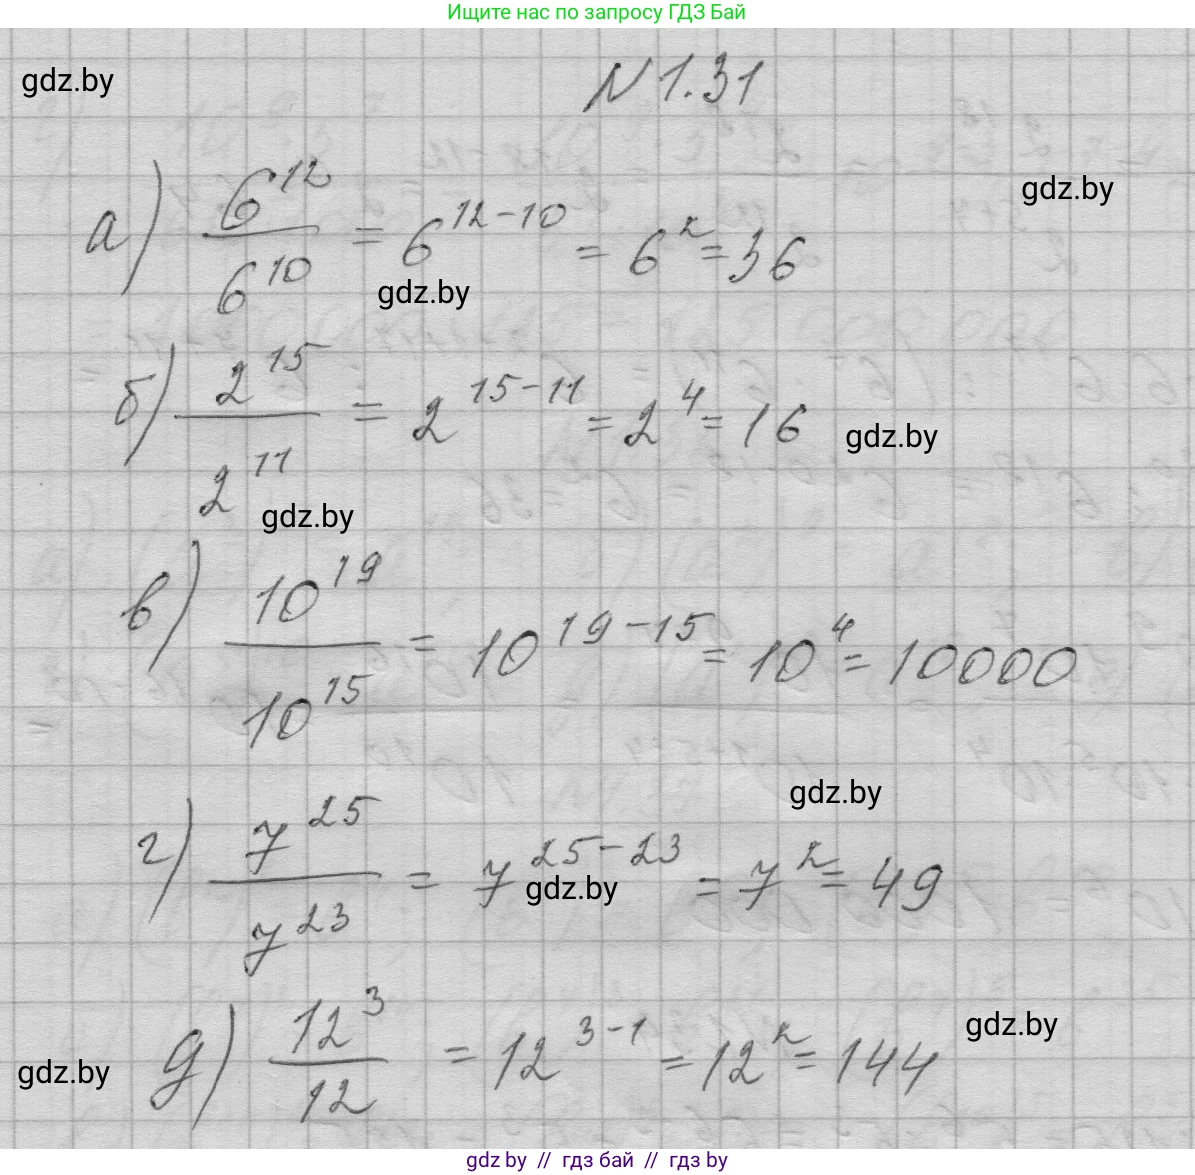 Ищите нас по запросу ГДЗ Бай
gdz.by
N 1.31
gdz.by
а) 6^12 / 6^10 = 6^12-10 = 6^2 = 36
gdz.by
б) 2^15 / 2^11 = 2^15-11 = 2^4 = 16
gdz.by
gdz.by
в) 10^19 / 10^15 = 10^19-15 = 10^4 = 10000
gdz.by
г) 7^25 / 7^23 = 7^25-23 = 7^2 = 49
gdz.by
gdz.by
д) 12^3 / 12 = 12^3-1 = 12^2 = 144
gdz.by
gdz.by // гдз бай // гдз by